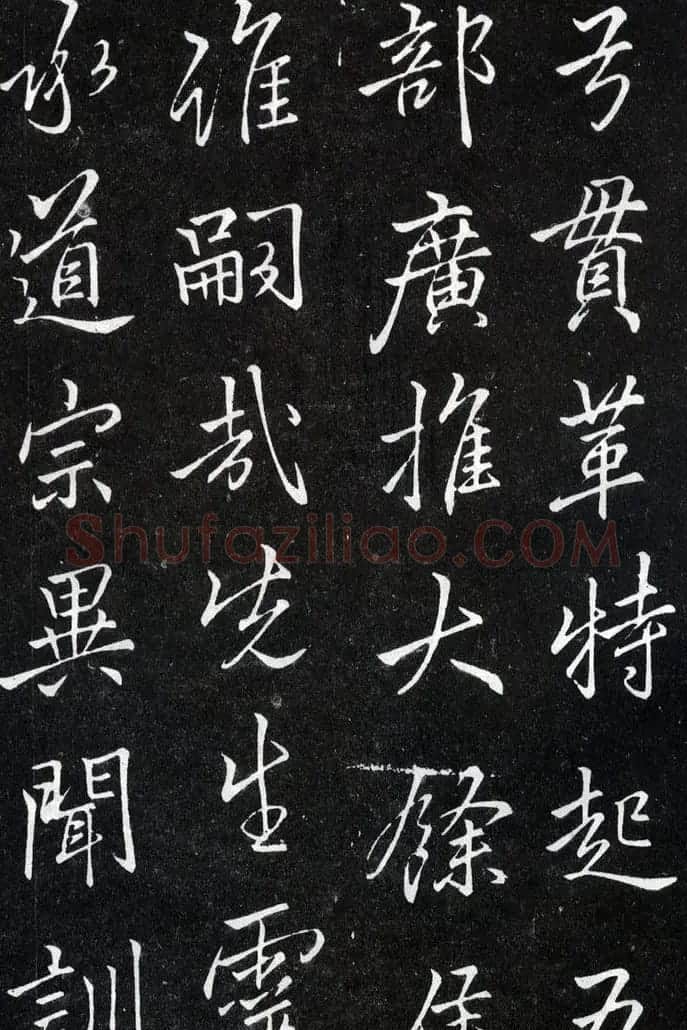 貫革特起五
部廣推大餘
誰嗣哉先生靈
承道宗異聞訓
Shufaziliao.COM